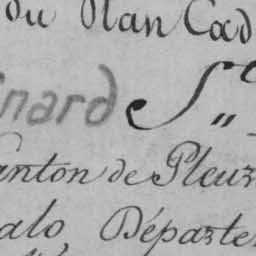 du Plan Cad
nard S.on
anton de Pleur
alo, Départe